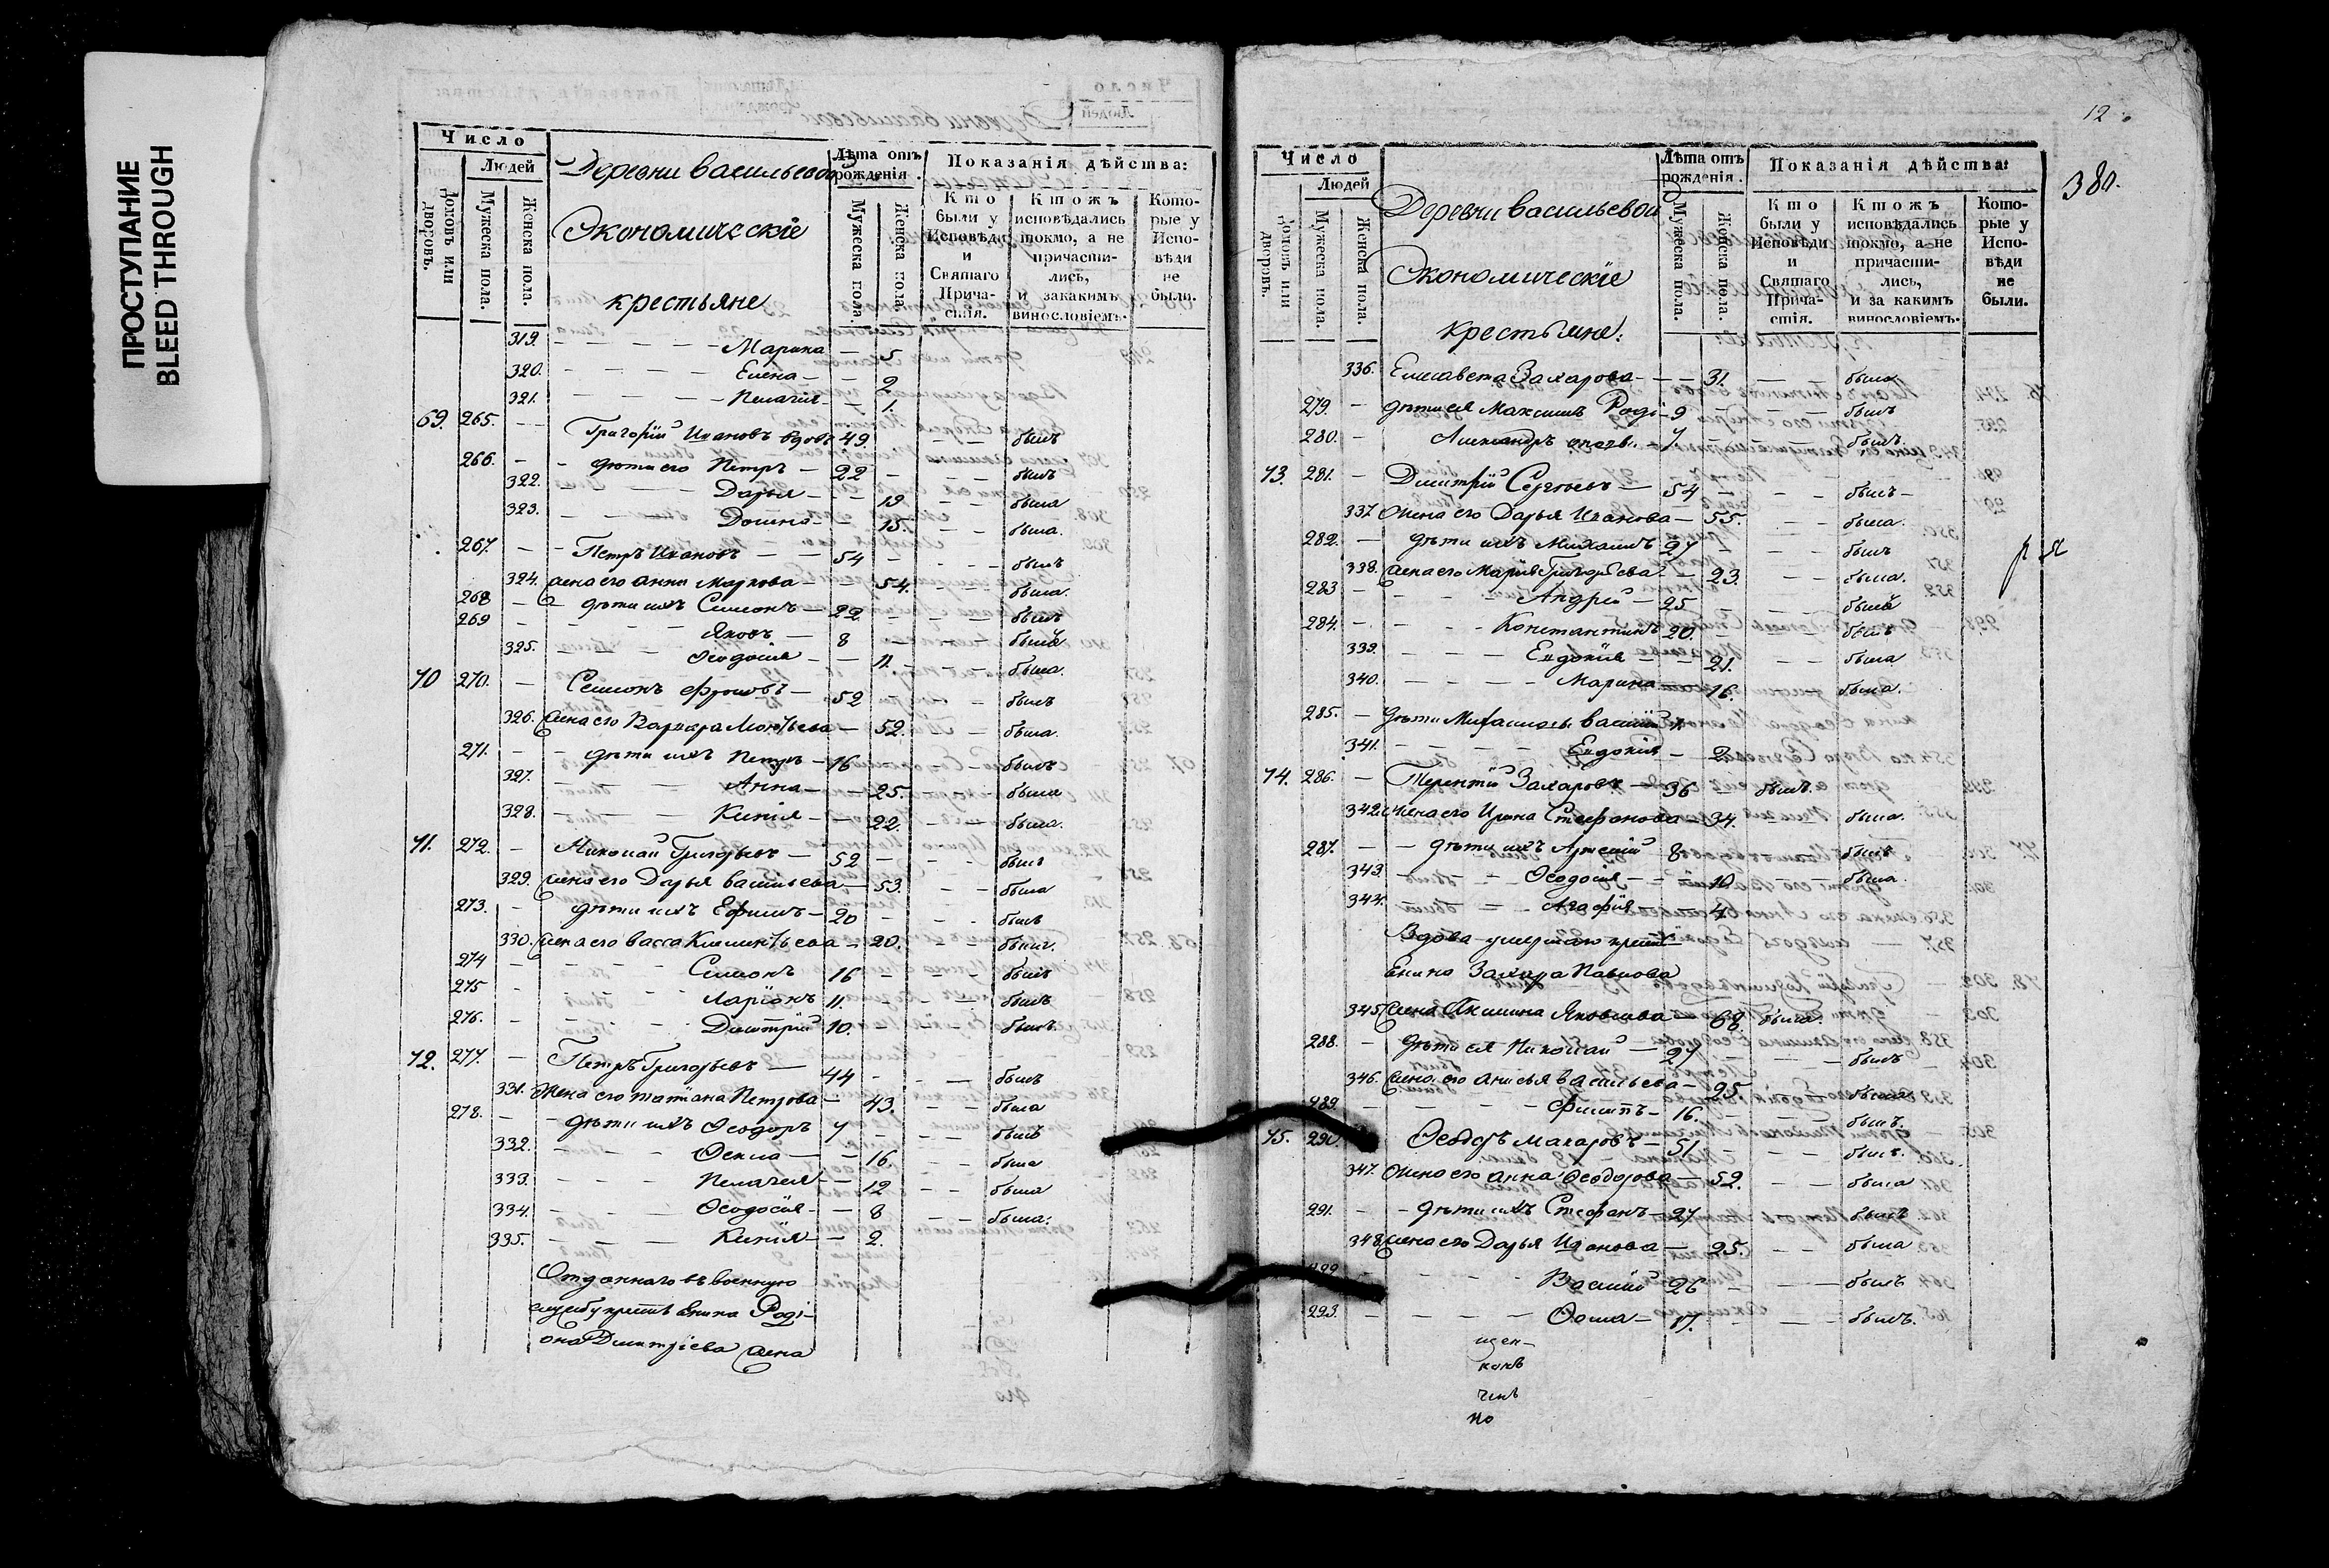 ПРОСТУПАНИЕ
BLEED THROUGH
Число
Людей
Домовъ или дворовъ.
Мужеска пола.
Женска пола.
Деревни васильевой
Экономическіе
крестьяне
Лѣта отъ рожденія
Мужеска пола
Женска пола
Показанія дѣйства:
Кто были у Исповѣди и Святаго Прича-стія.
Ктожъ исповѣдались токмо, а не причасти-лись, и закакимъ винословіемъ.
Кото-рые у Испо-вѣди не были.
319. Марина 5
320. Елена 2
321. Пелагея 1.
69. 265. Григорій Ивановъ вдовъ 49. былъ
266. дѣти его Петръ 22 былъ
322. Дарья 19 была
323. Домна 15. была.
267. Петръ Ивановъ 54 былъ
324. жена его анна Маркова 54. была.
268 дѣти ихъ Симонъ 22 былъ
269 Яковъ 8 былъ
325. Ѳеодосія 11. была.
70 270. Семионъ ефимовъ 52 былъ
326. жена его Варвара 52. была.
271. дѣти ихъ Петръ 16 былъ
327. Анна 25. была
328. Килія 22. была.
71. 272. Николай Григорьевъ 52 былъ
329. жена его Дарья васильева 53. была
273. дѣти ихъ Ефимъ 20 былъ
330. жена его васса Климентьева 20. была.
274 Симионъ 16 былъ
275 Ларіонъ 11 былъ
276. Димитрій 10. былъ
72. 277. Петръ Григорьевъ 44 былъ
331. Жена его татіана Петрова 43. была
278. дѣти ихъ Ѳеодоръ 7 былъ
332. Ѳекла 16. была
333. Пелагея 12 была
334. Ѳеодосія 8 была.
335. Килія 2.
Отданнаго въ военную
службу крестьянина Роді-
она Димитріева жена
12
380.
Число
Людей
Домовъ или дворовъ.
Мужеска пола.
Женска пола.
Деревни васильевой
Экономическіе
крестьяне.
Лѣта отъ рожденія.
Мужеска пола.
Женска пола.
Показанія дѣйства:
Кто были у Исповѣди и Святаго Прича-стія.
Ктожъ исповѣдались токмо, а не причасти-лись, и за какимъ винословіемъ.
Кото-рые у Испо-вѣди не были.
336. Елисавета Захарова 31. была
279. дѣти ея Максимъ Роді 9 былъ
280. Александръ 7. былъ
73. 281. Димитрій Сергѣевъ 54 былъ
337. Жена его Дарья Иванова 55. была.
282. дѣти ихъ Михаилъ 27 былъ
338. жена его Марія Григорьева 23. была.
283 Андрей 25 былъ
284. Константинъ 20. былъ
339. Евдокія 21. была
340. Марина 16. была.
285. дѣти Михаиловы василій 4
341. Евдокія 2
74. 286. Терентій Захаровъ 36 былъ
342. жена его Ирина Стефанова 34. была.
287. дѣти ихъ Арсеній 8 былъ
343. Ѳеодосія 10 была.
344. Агафія 4
Вдова умершаго кресть
янина Захара Павлова
345. жена Акилина Яковлева 68. была.
288. дѣти ея Николай 27 былъ
346. жена его анисья васильева 25. была
289. филипъ 16. былъ.
75. 290. Ѳеодоръ макаровъ 51 былъ.
347. Жена его анна Ѳеодорова 52. была
291. дѣти ихъ Стефанъ 27 былъ
348. жена его Дарья Иванова 25. была
292 Василій 26 былъ
293. Ѳома 17. былъ.
щен-